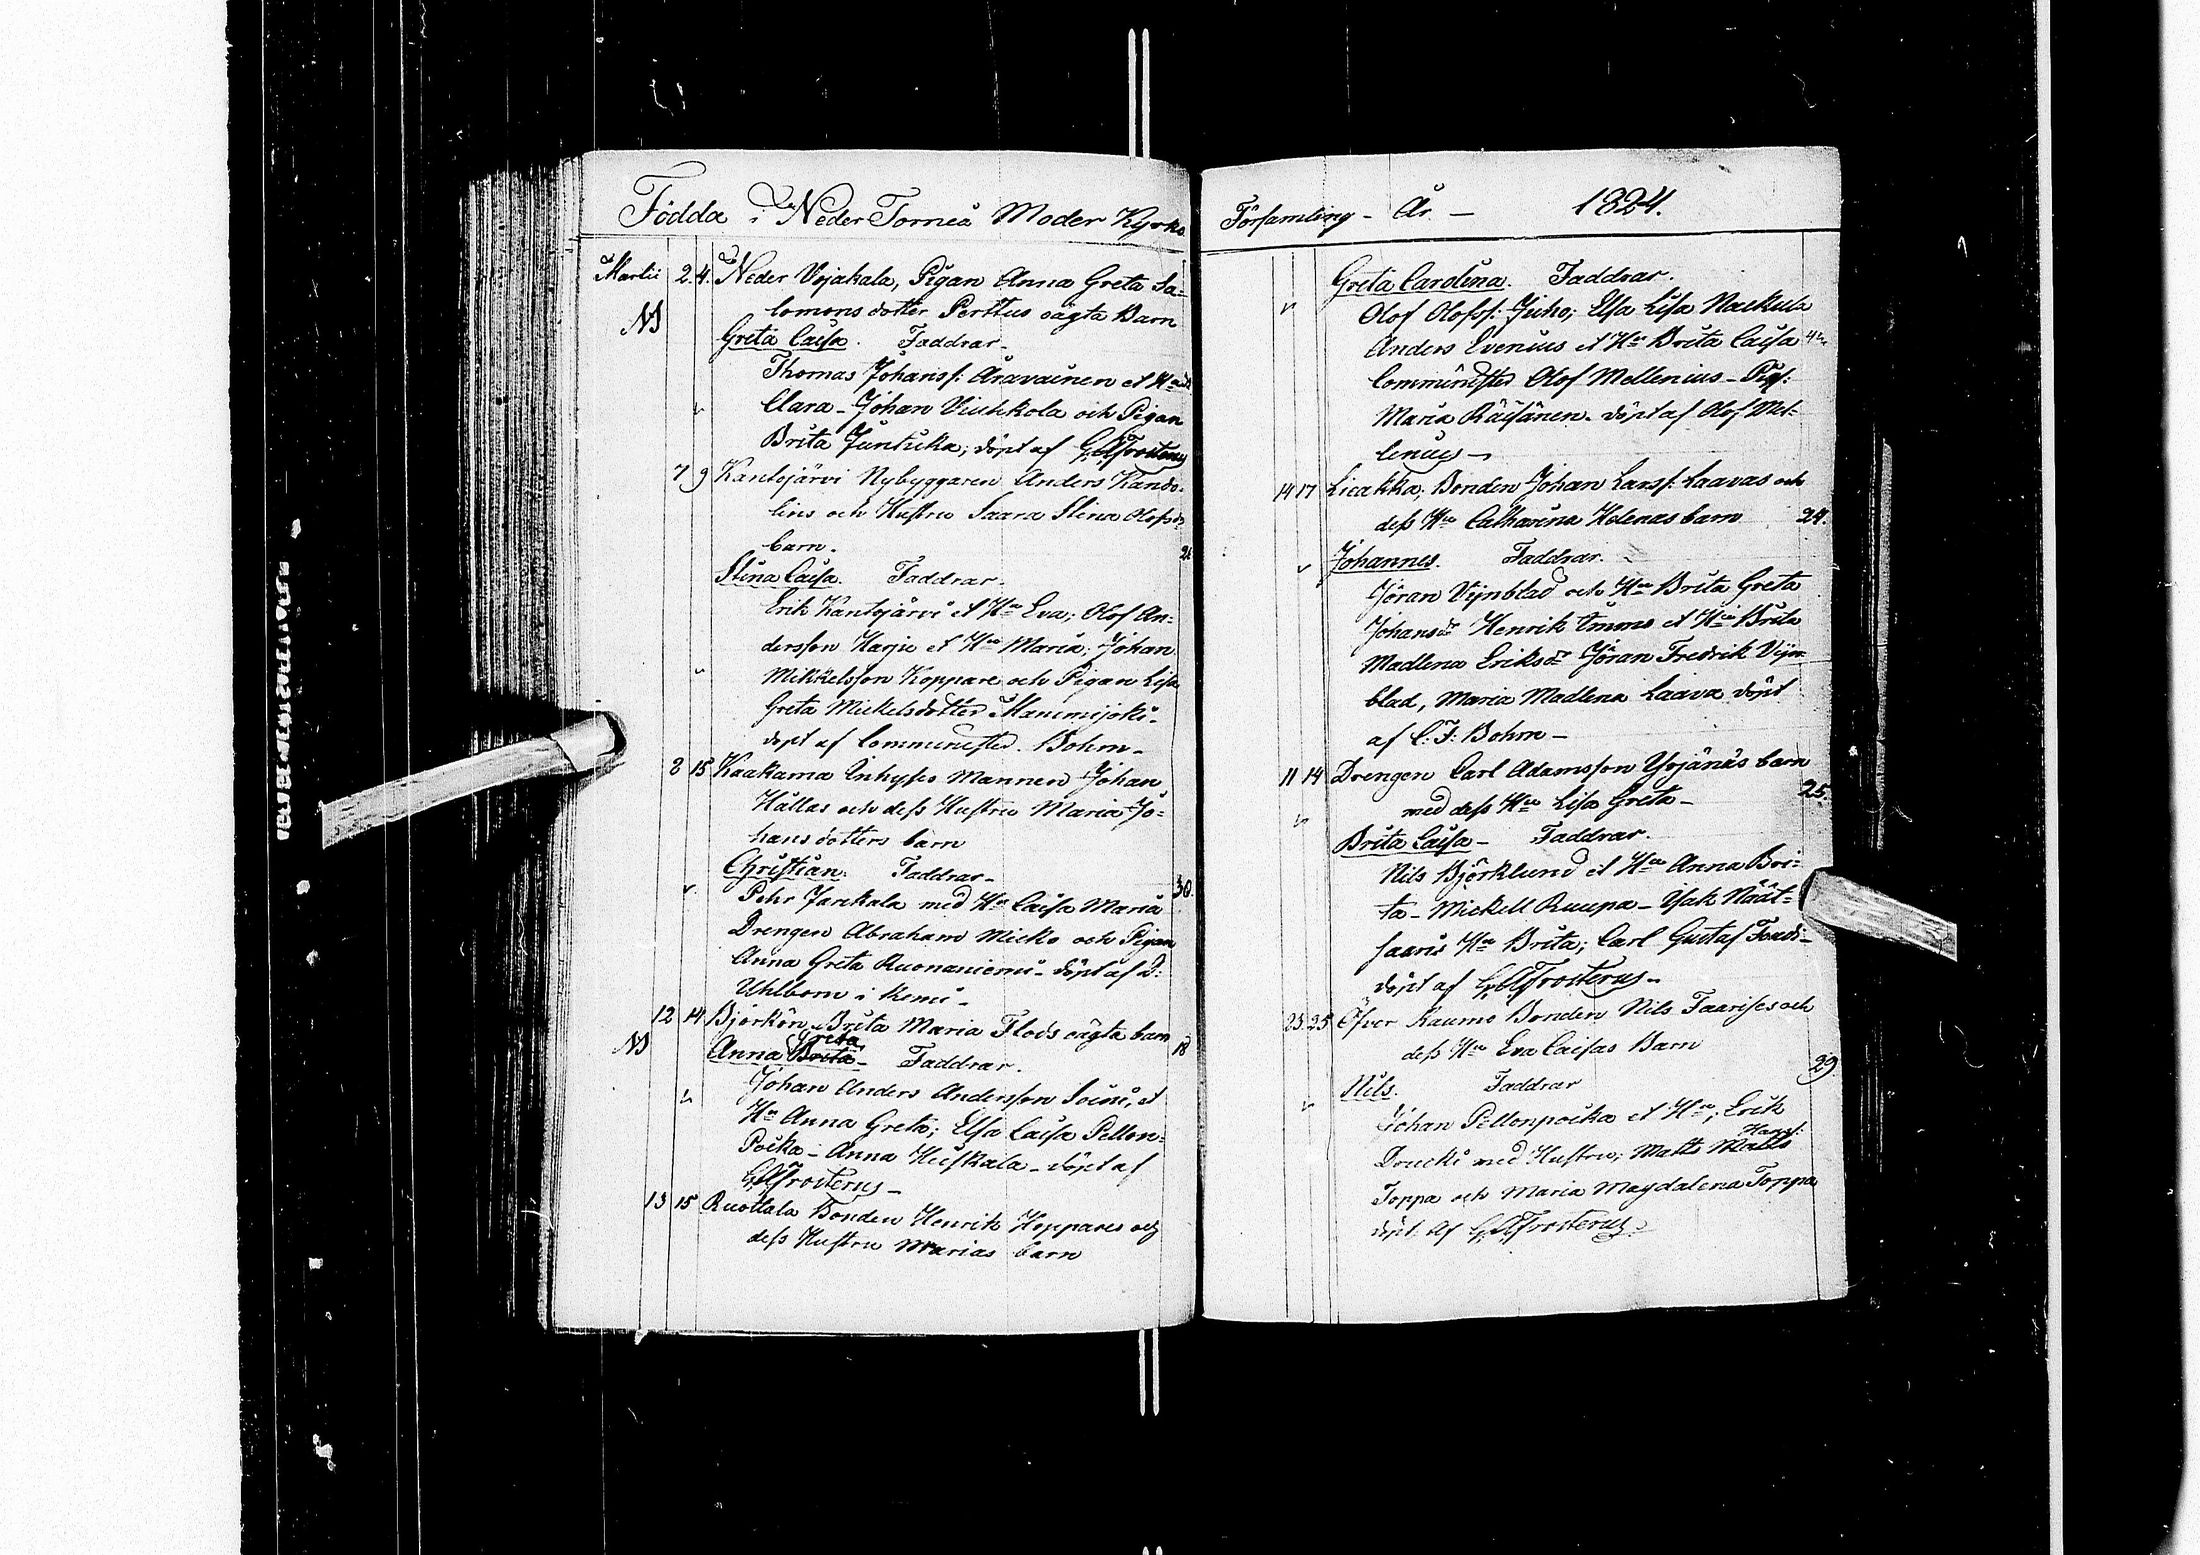 Födda i Neder Torneå Moder Kyrko
Martii 2. 4. Neder Vojakala, Pigan Anna Greta Sa-
lomons dotter Perttus oägta Barn
Greta Caisa. Faddrar_
Thomas Johanss: Aravainen et Hu
Clara - Johan Viuhkola och Pigan
Brita Juntikka; döpt af G. A. Frosterus
7 9 Kantojärvi Nybyggaren Anders Kando-
lins och Hustru Saara Stina Olofsd
barn.
Stina Caisa. Faddrar_
Erik Kantojärvi et Hu Eva; Olof An-
dersson Harju et Hu Maria; Johan
Mikkelsson Koppare och Pigan Lisa
Greta Mickelsdotter
döpt af Comminister Bohm_
8 15 Kaakama Inhyses Mannen Johan
Hallas och dess Hustru Maria Jo-
hans dotters barn
30.
Christian. Faddrar_
Pehr Jarekala med Hu Caisa Maria
Drengen Abraham Micko och Pigan
Anna Greta Ruonaniemi - döpt af D:
Uhlbom i Kemi_
12 14 Björkön Brita Maria Flods oägta barn
18
Greta
Anna Brita_ Faddrar.
Johan Anders Andersson Soini, et
Hu Anna Greta; Elsa Caisa Pellon-
Poika - Anna Huskala - döpt af
G. A. Frosterus_
13 15 Ruottala Bonden Henrik Hoppares och
dess Hustru Marias barn
Församling - År. - 1824.
Greta Carolina. Faddrar.
Olof Olofss: Juho; Elsa Lisa Raekula
Anders Evenius et Hu Brita Caisa
Comminister Olof Mellenius - Pig:
Maria Räisänen. döpt af Olof Mel-
lenius_
14 17 Liakka; Bonden Johan Larss: Laavas och
dess Hu Catharina Helenas barn 24.
Johannes. Faddrar.
Jöran Vijnblad och Hu Brita Greta
Johansdr Henrik Emmes et Hu Brita
Madlena Eriksdr Jöran Fredrik Vijn-
blad, Maria Madlena Laava döpt
af C: F: Bohm_
11 14 Drengen Carl Adamsson Yrjänäs barn
med dess Hu Lisa Greta_ 25.
Brita Caisa_ Faddrar.
Nils Björklund et Hu Anna Bri-
ta - Mickell Ruupa - Isak Näät-
saaris Hu Brita; Carl Gustaf Fondi_
döpt af G. A. Frosterus_
23 25 Öfver Raumo Bonden Nils Faarises och
dess Hu Eva Caisas Barn
29
Nils. Faddrar
Johan Pellonpoika et Hu; Erik
Hanss:
Drucki med Hustru; Matts Matts
Toppa och Maria Magdalena Toppa
döpt af G. A. Frosterus.